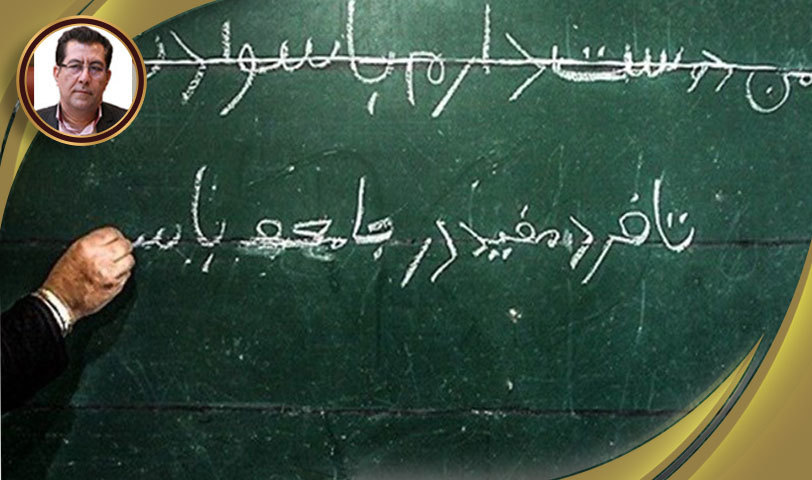 من دوست دارم باسواد
تا فرد مفید در جامعه باس